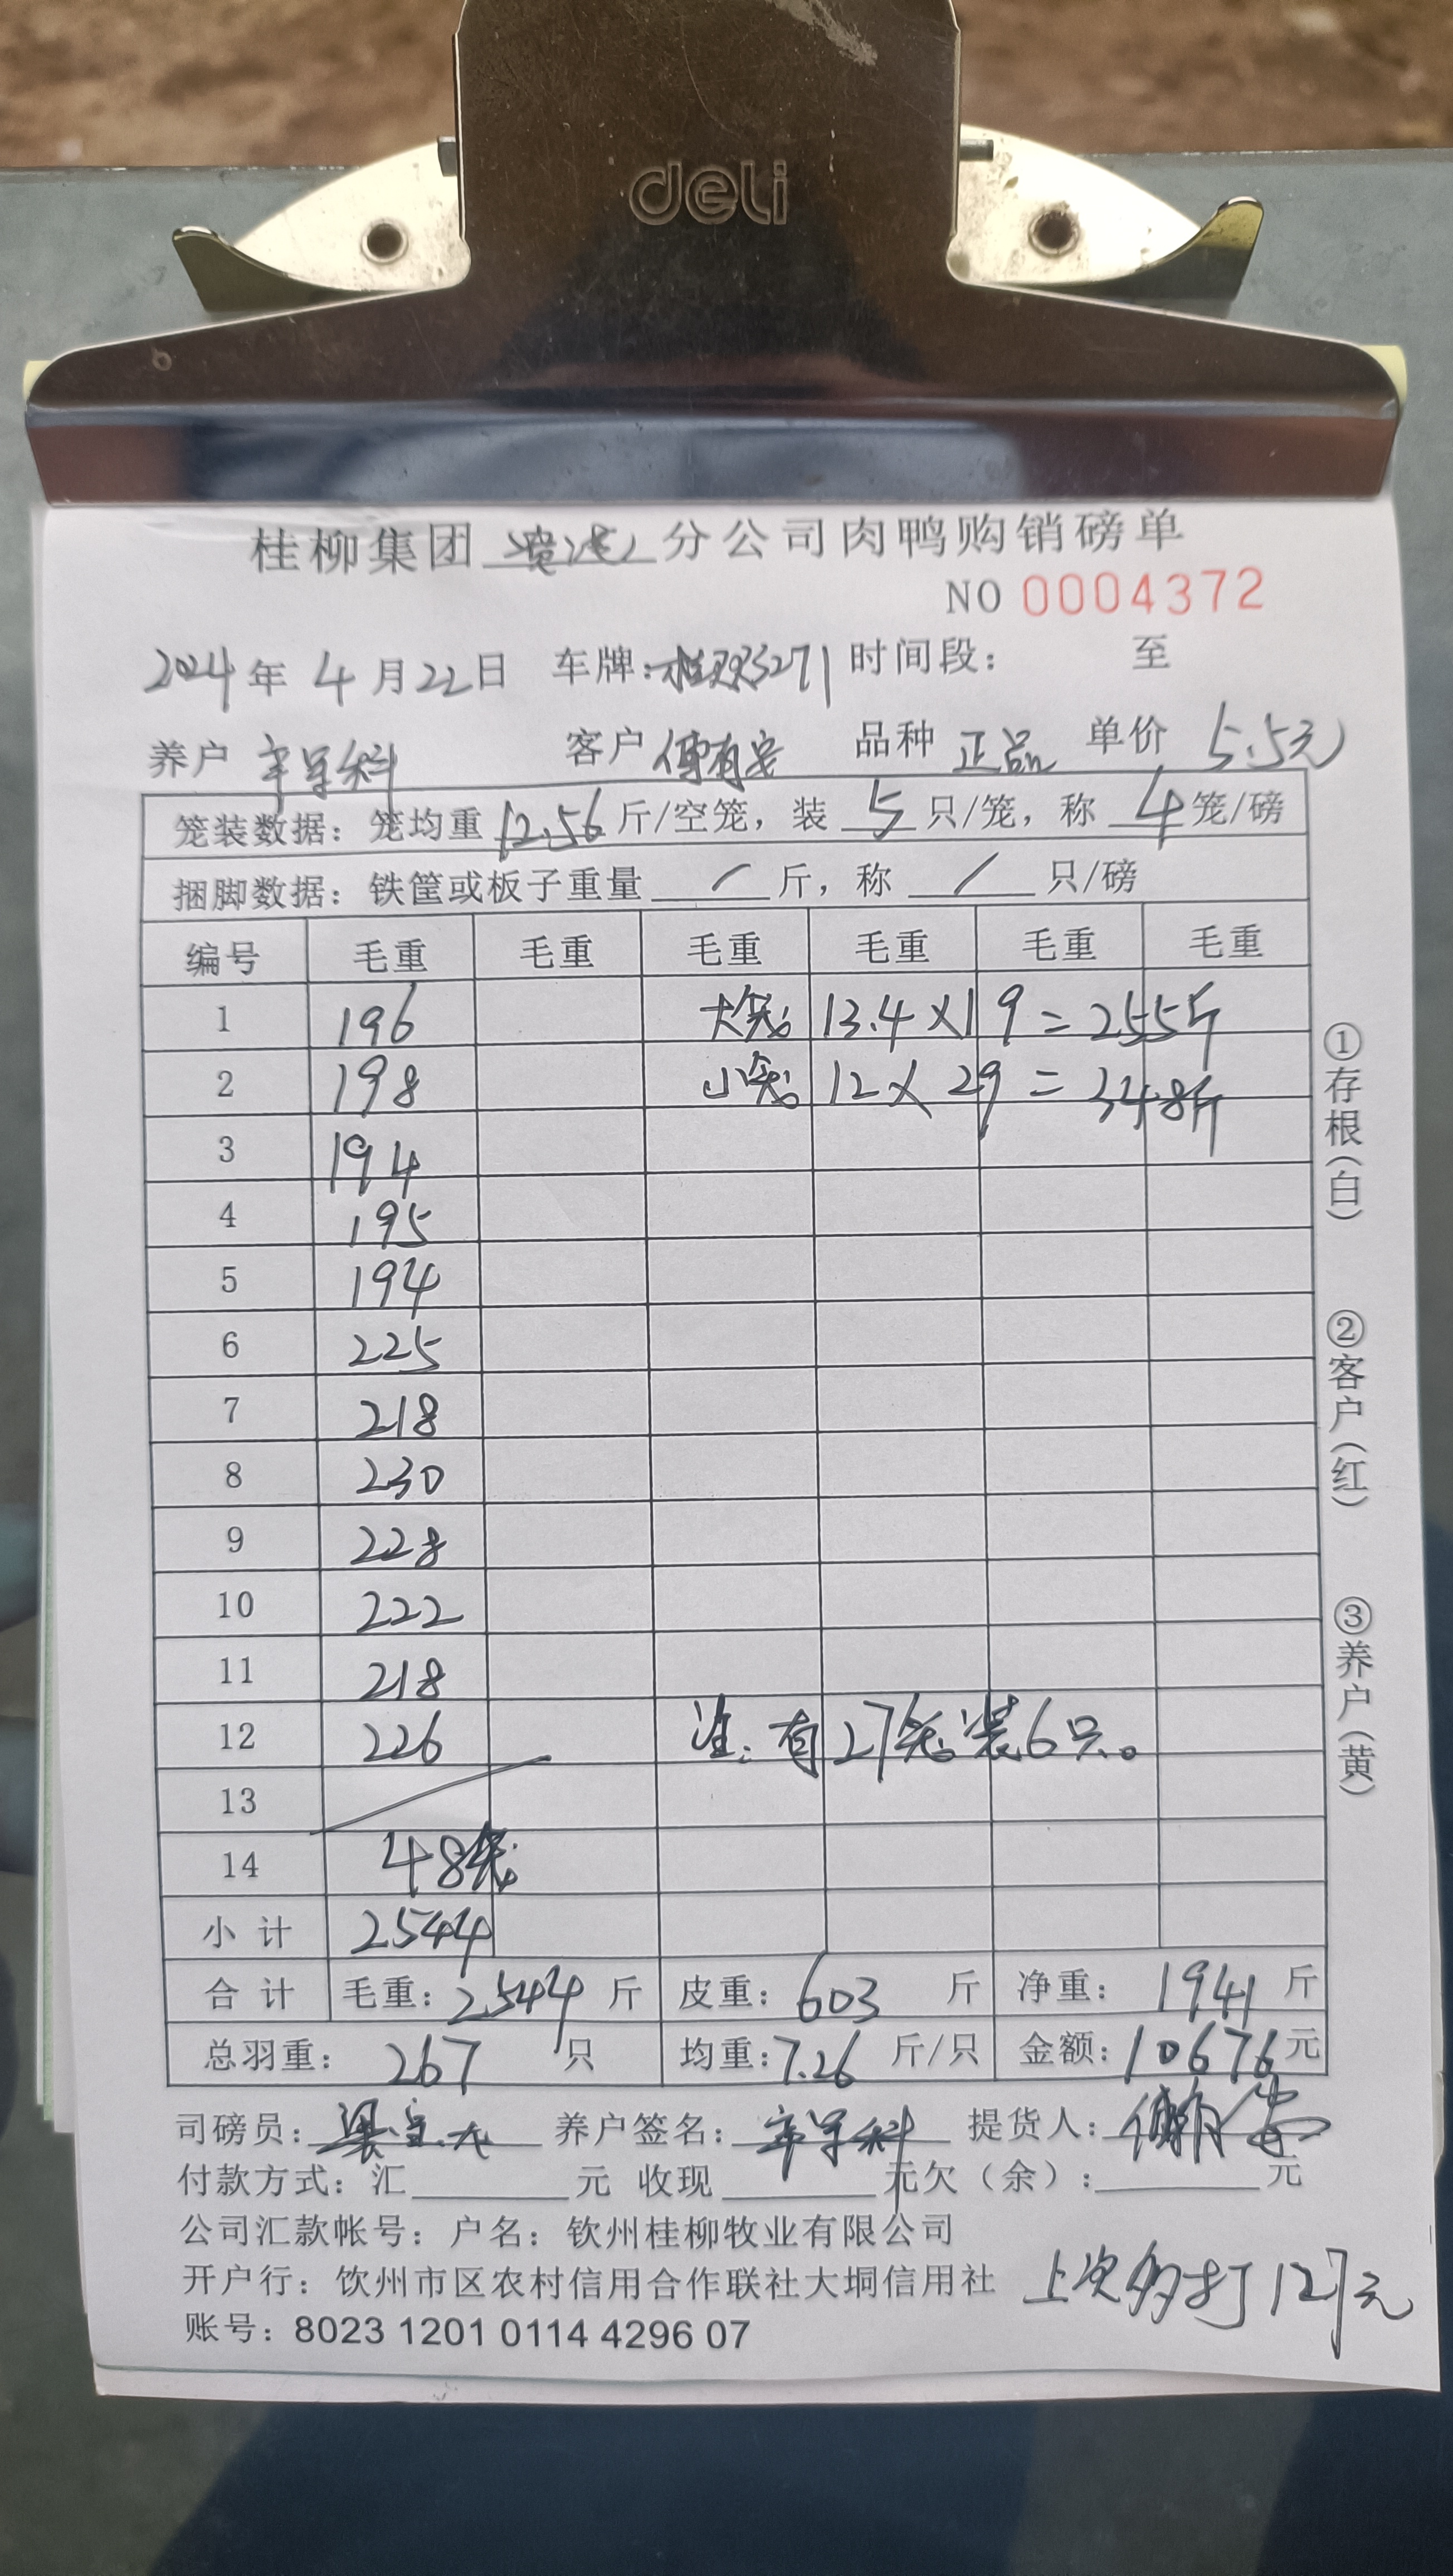 deli
桂柳集团 分公司肉鸭购销磅单
NO 0004372
2024年4月22日 车牌: 3271 时间段: 至
养户 客户 傅有安 品种 正品 单价 5.5元
笼装数据: 笼均重 12.56 斤/空笼, 装 5 只/笼, 称 4 笼/磅
捆脚数据: 铁筐或板子重量 / 斤, 称 / 只/磅
编号 毛重 毛重 毛重 毛重 毛重 毛重
1 196 大笼 13.4×19=255斤
2 198 小笼 12×29=348斤
3 194
4 195
5 194
6 225
7 218
8 230
9 228
10 222
11 218
12 226 注:有27笼装6只。
13
14 48笼
小计 2544
合计 毛重: 2544 斤 皮重: 603 斤 净重: 1941 斤
总羽重: 267 只 均重: 7.26 斤/只 金额: 10676 元
司磅员: 养户签名: 提货人: 傅有安
付款方式: 汇 元 收现 元欠(余): 元
公司汇款帐号: 户名: 钦州桂柳牧业有限公司
开户行: 钦州市区农村信用合作联社大垌信用社 上次多打127元
账号: 8023 1201 0114 4296 07
①存根(白)
②客户(红)
③养户(黄)